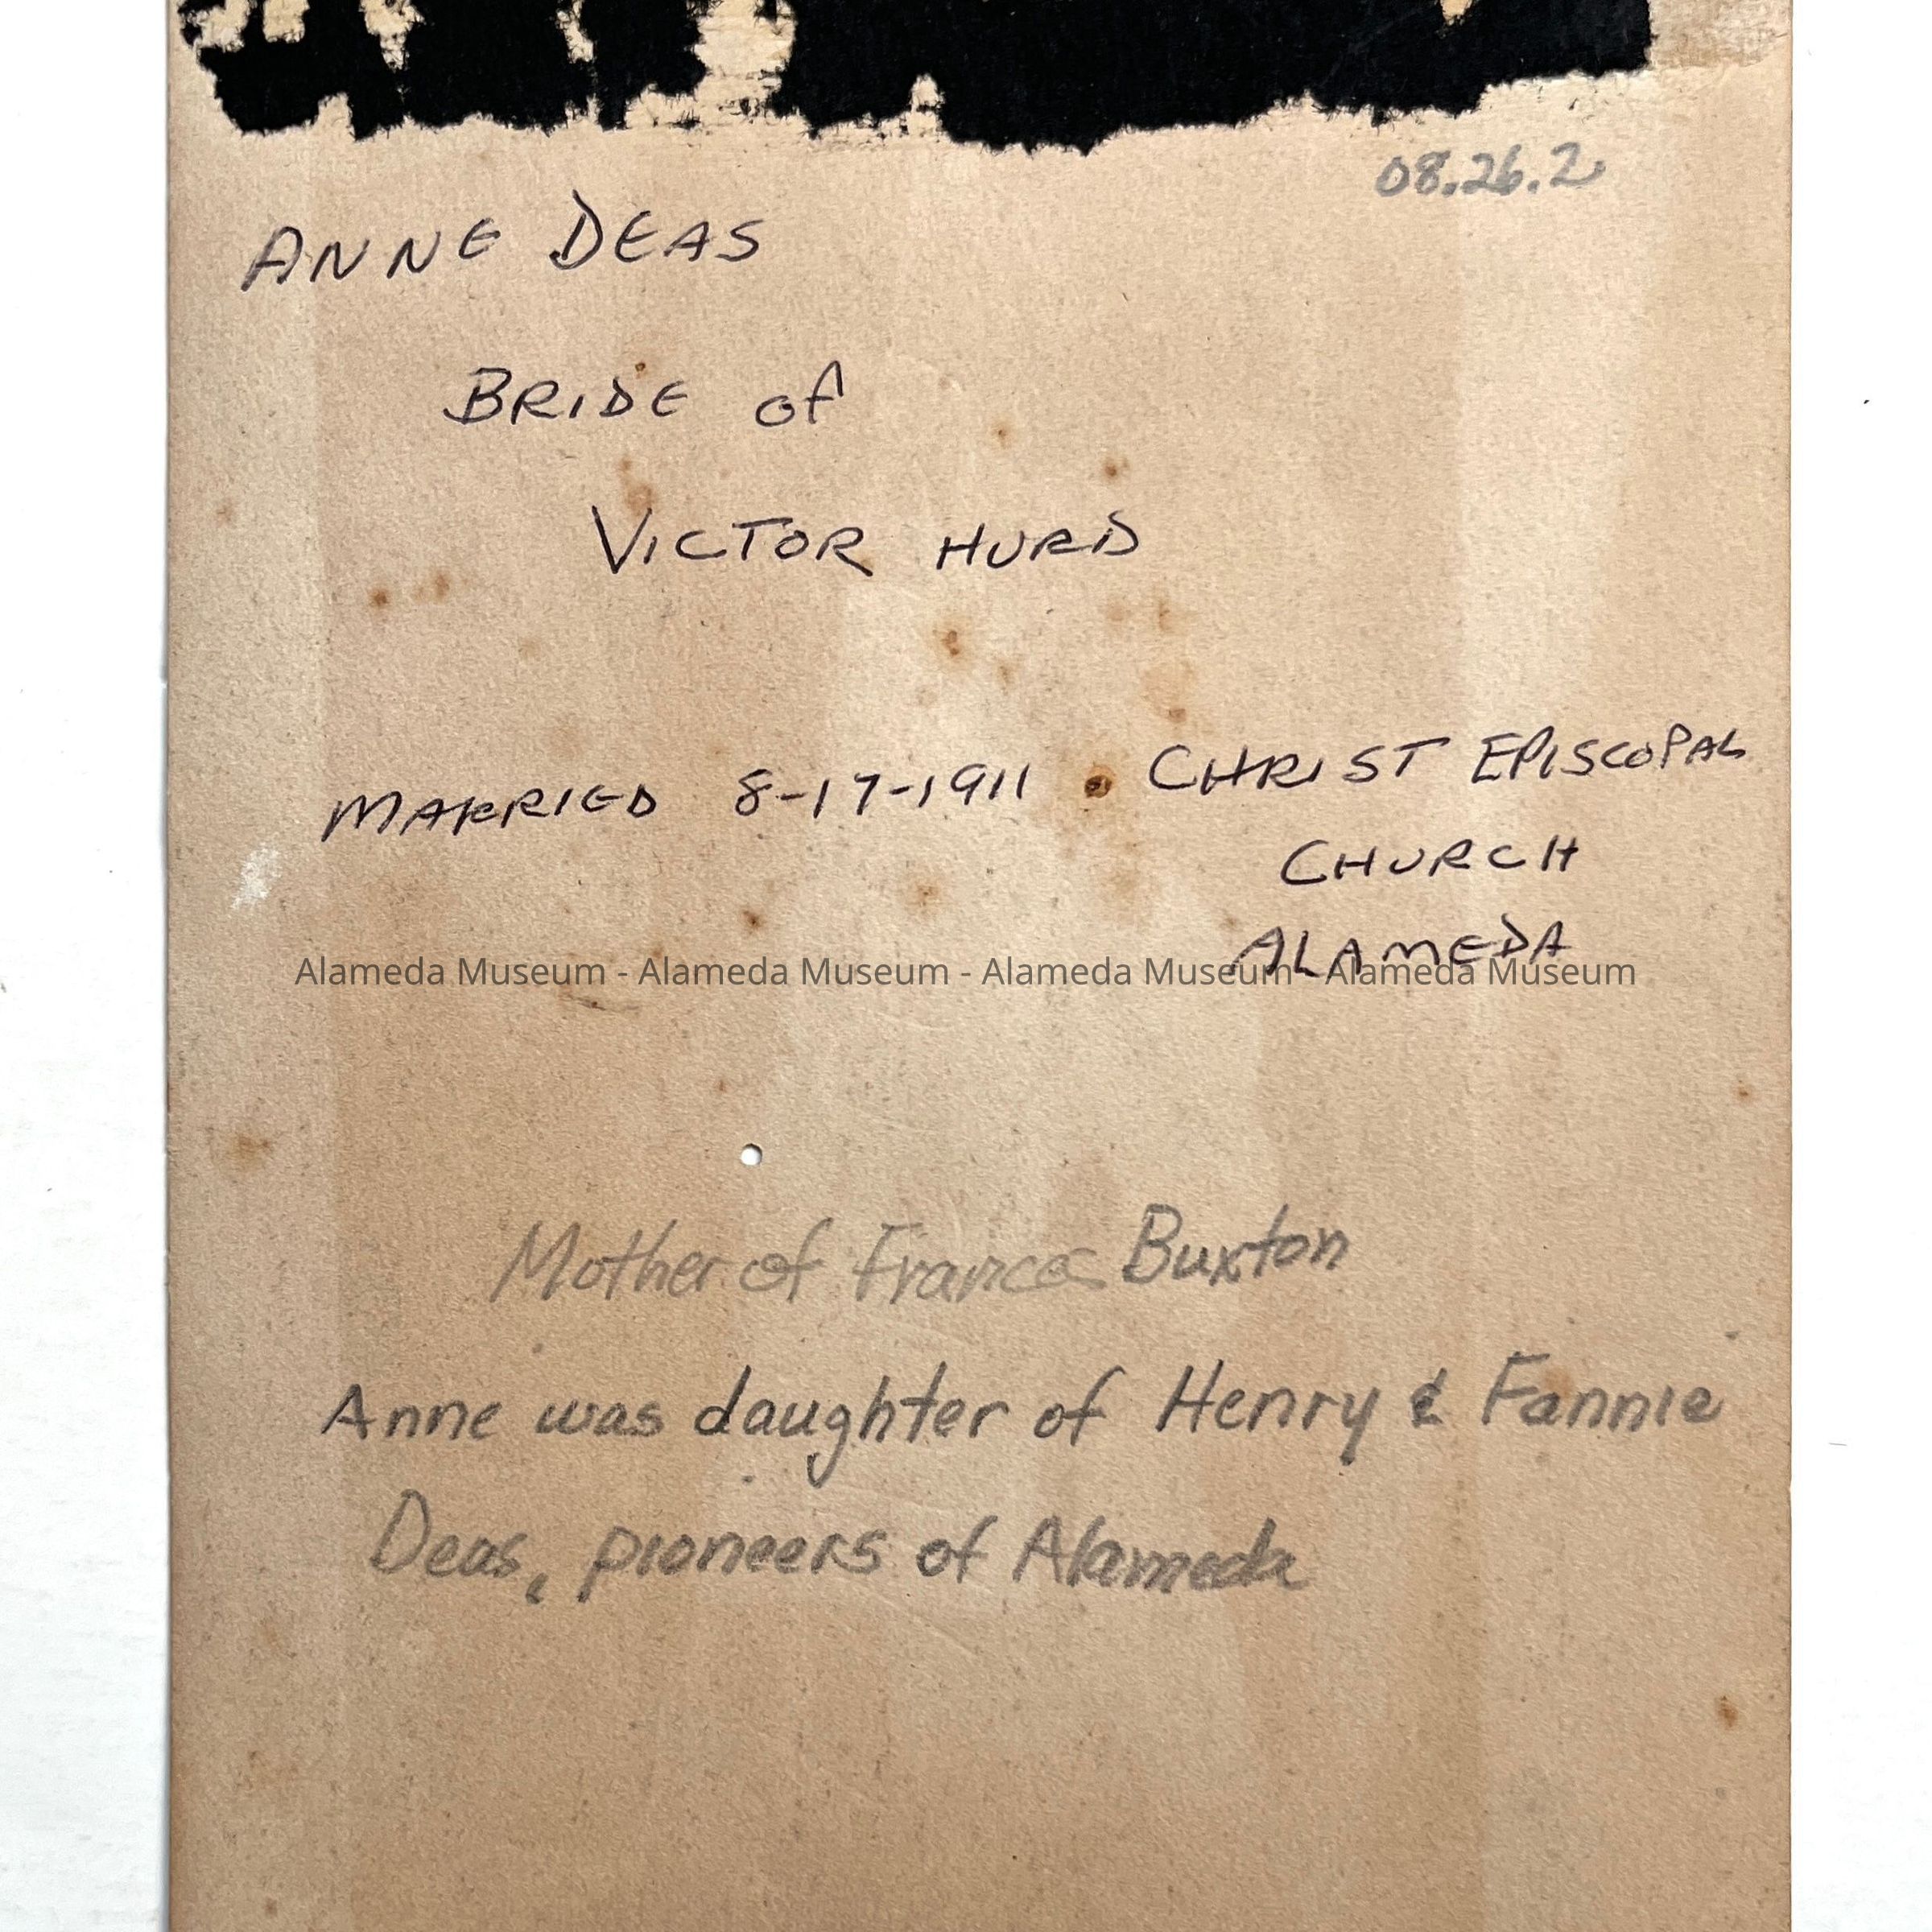 08.26.2
ANNE DEAS
BRIDE of
VICTOR HURD
MARRIED 8-17-1911 • CHRIST EPISCOPAL
CHURCH
ALAMEDA
Alameda Museum - Alameda Museum - Alameda Museum - Alameda Museum
Mother of Frances Buxton
Anne was daughter of Henry & Fannie
Deas, pioneers of Alameda